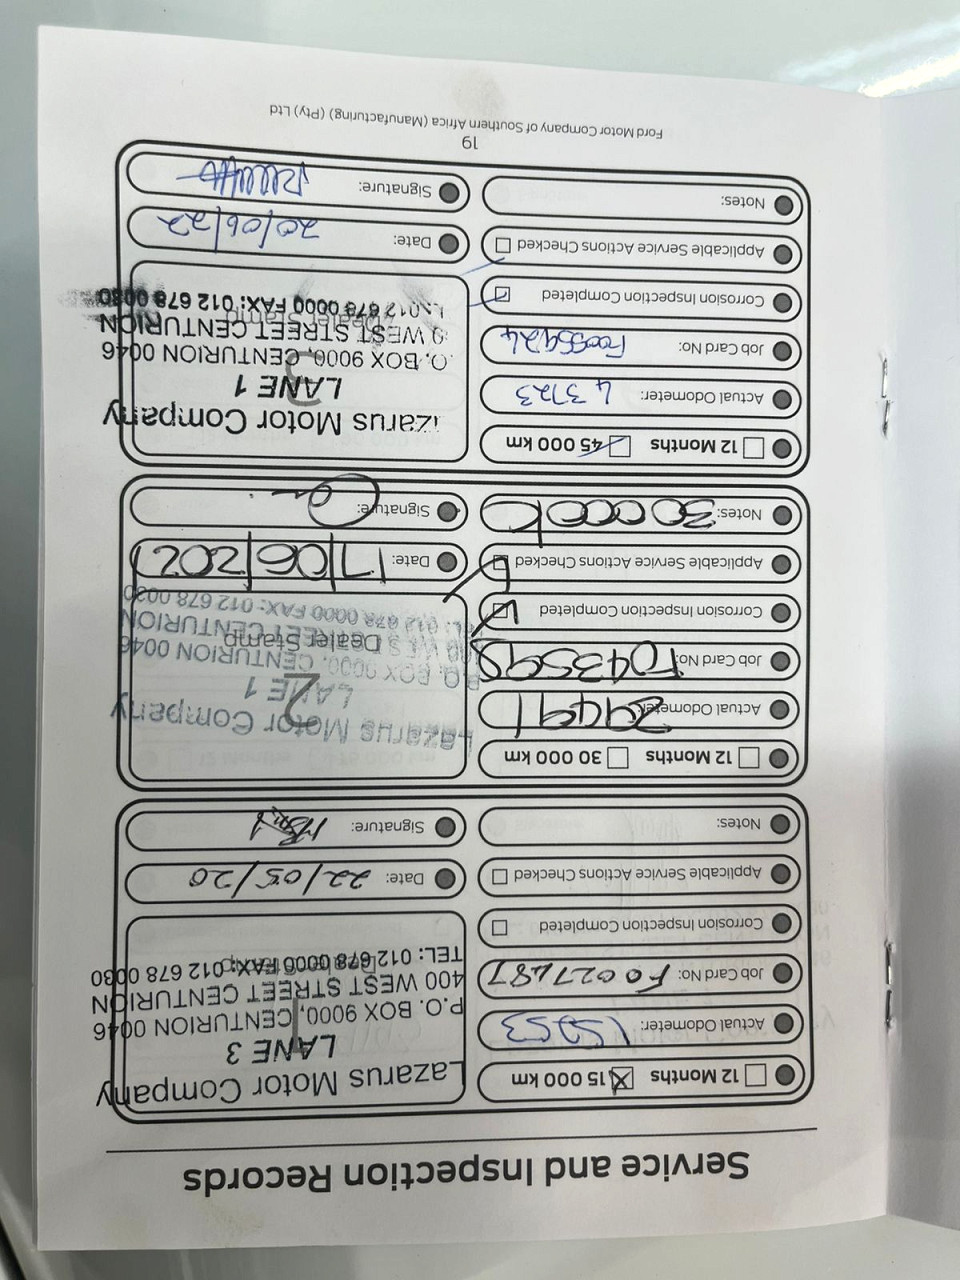 Service and Inspection Records
12 Months 15 000 km
Actual Odometer: 15053
Job Card No: F0027487
Corrosion Inspection Completed
Applicable Service Actions Checked
Notes:
Lazarus Motor Company
LANE 3
P.O. BOX 9000, CENTURION 0046
400 WEST STREET CENTURION
TEL: 012 678 0000 FAX: 012 678 0030
Dealer Stamp
1
Date: 22/05/20
Signature:
12 Months 30 000 km
Actual Odometer: 29491
Job Card No: F043595
Corrosion Inspection Completed
Applicable Service Actions Checked
Notes: 30000K
Lazarus Motor Company
LANE 1
P.O. BOX 9000, CENTURION 0046
400 WEST STREET CENTURION
TEL: 012 678 0000 FAX: 012 678 0030
Dealer Stamp
2
Date: 17/06/2021
Signature:
12 Months 45 000 km
Actual Odometer: 43723
Job Card No: F0055924
Corrosion Inspection Completed
Applicable Service Actions Checked
Notes:
zarus Motor Company
LANE 1
O. BOX 9000, CENTURION 0046
0 WEST STREET CENTURION
L: 012 678 0000 FAX: 012 678 0030
Dealer Stamp
3
Date: 20/06/22
Signature:
19
Ford Motor Company of Southern Africa (Manufacturing) (Pty) Ltd